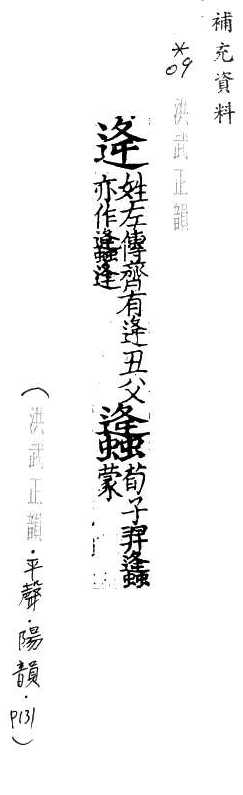 補充資料
*09 洪武正韻
逄
姓左傳齊有逄丑父
亦作蠭逢
蠭
荀子羿蠭
蒙
(洪武正韻·平聲·陽韻·P131)